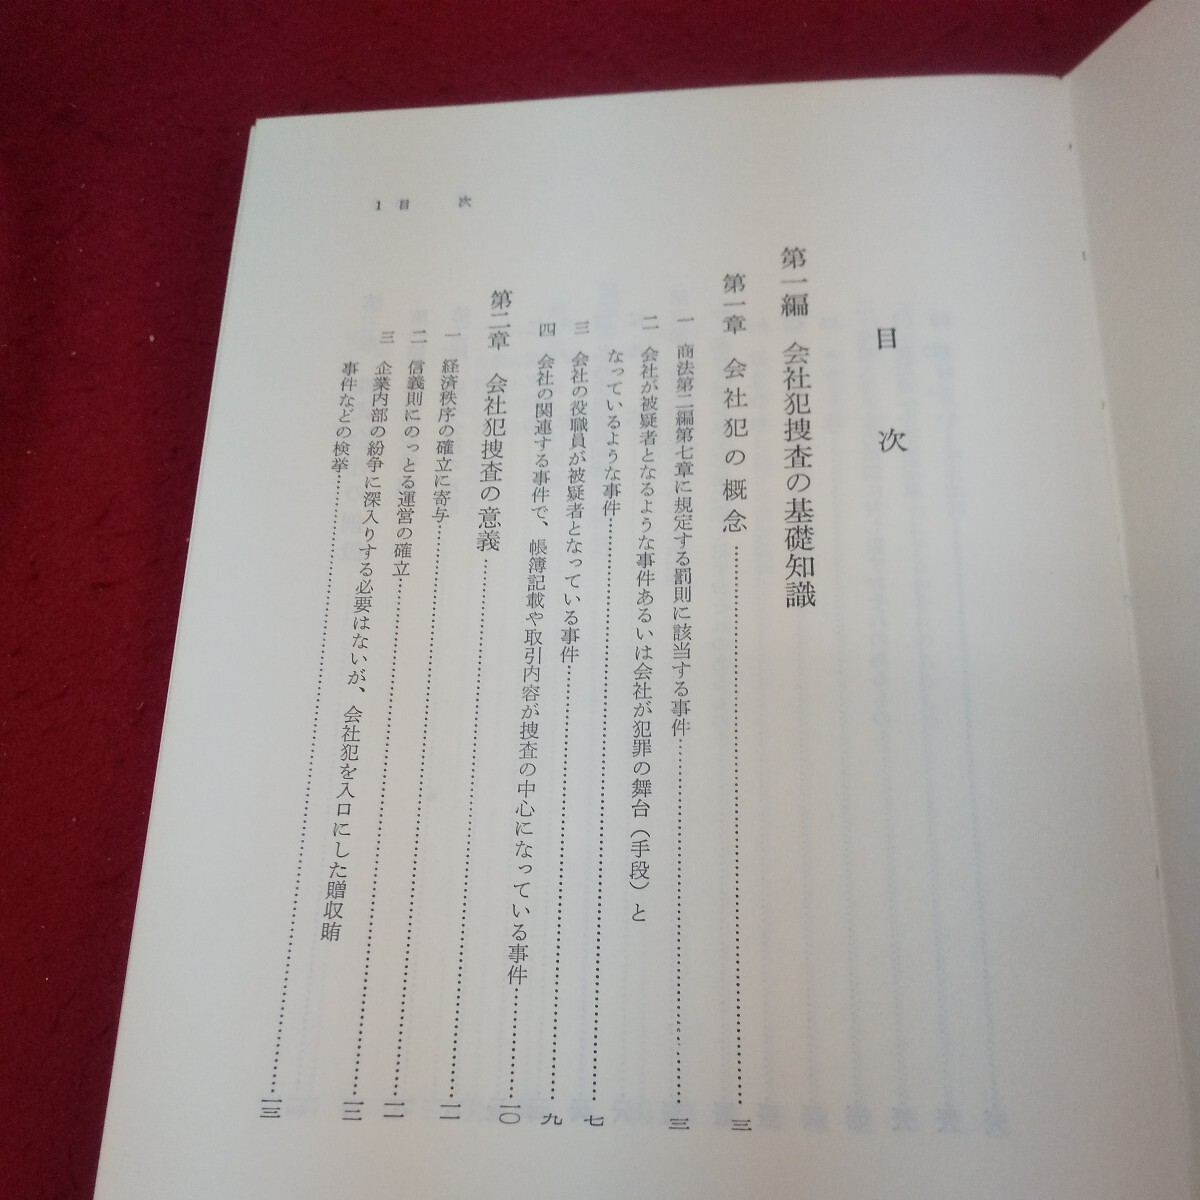 1 目 次
目 次
第一編 会社犯捜査の基礎知識
第一章 会社犯の概念……三
一 商法第二編第七章に規定する罰則に該当する事件……三
二 会社が被疑者となるような事件あるいは会社が犯罪の舞台(手段)と
なっているような事件……七
三 会社の役職員が被疑者となっている事件……九
四 会社の関連する事件で、帳簿記載や取引内容が捜査の中心になっている事件……一〇
第二章 会社犯捜査の意義……一一
一 経済秩序の確立に寄与……一一
二 信義則にのっとる運営の確立……一二
三 企業内部の紛争に深入りする必要はないが、会社犯を入口にした贈収賄
事件などの検挙……一三